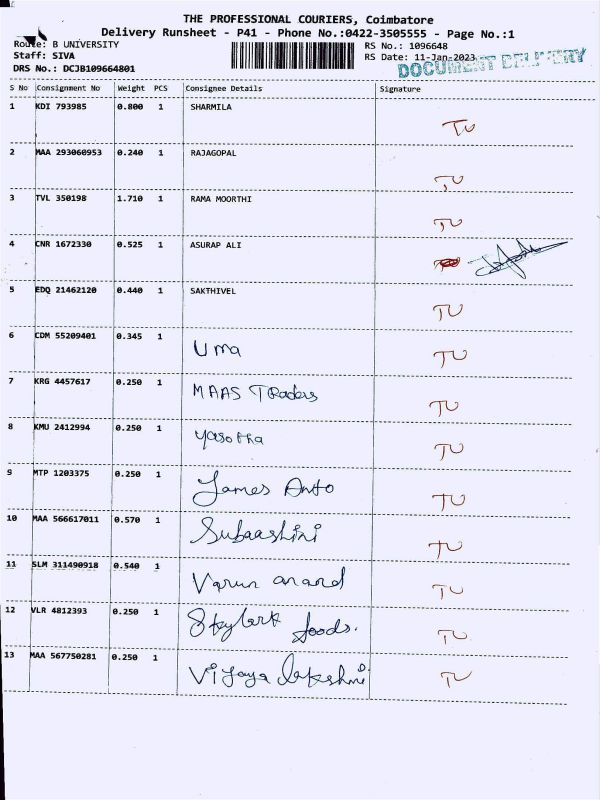 THE PROFESSIONAL COURIERS, Coimbatore
Delivery Runsheet - P41 - Phone No.:0422-3505555 - Page No.:1
Route: B UNIVERSITY RS No.: 1096648
Staff: SIVA RS Date: 11-Jan-2023
DRS No.: DCJB109664801 DOCUMENT DELIVERY
S No Consignment No Weight PCS Consignee Details Signature
1 KDI 793985 0.800 1 SHARMILA TU
2 MAA 293060953 0.240 1 RAJAGOPAL TU
3 TVL 350198 1.710 1 RAMA MOORTHI TU
4 CNR 1672330 0.525 1 ASURAP ALI
5 EDQ 21462120 0.440 1 SAKTHIVEL TU
6 CDM 55209401 0.345 1 Uma TU
7 KRG 4457617 0.250 1 MAAS Traders TU
8 KMU 2412994 0.250 1 yasotha TU
9 MTP 1203375 0.250 1 James Anto TU
10 MAA 566617011 0.570 1 Subaashini TU
11 SLM 311490918 0.540 1 Varun anand TU
12 VLR 4812393 0.250 1 Skylark foods. TU
13 MAA 567750281 0.250 1 Vijaya lakshmi TU